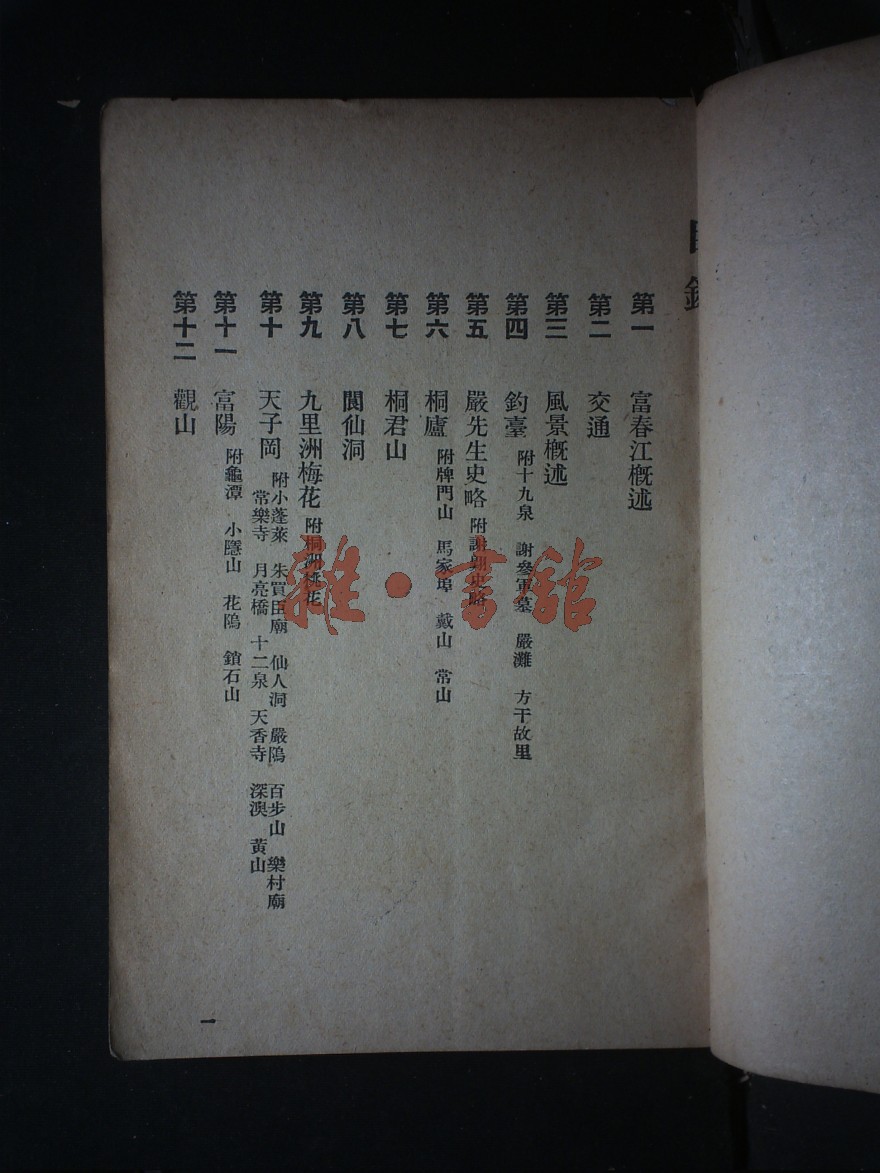 目錄
第一 富春江概述
第二 交通
第三 風景概述
第四 釣臺 附十九泉 謝參軍墓 嚴灘 方干故里
第五 嚴先生史略 附謝翺史略
第六 桐廬 附牌門山 馬家埠 戴山 常山
第七 桐君山
第八 閬仙洞
第九 九里洲梅花 附桐洲桃花
第十 天子岡 附小蓬萊 朱買臣廟 仙人洞 嚴隖 百步山 樂村廟
常樂寺 月亮橋 十二泉 天香寺 深澳 黃山
第十一 富陽 附龜潭 小隱山 花隖 鎖石山
第十二 觀山
一
雜·書館